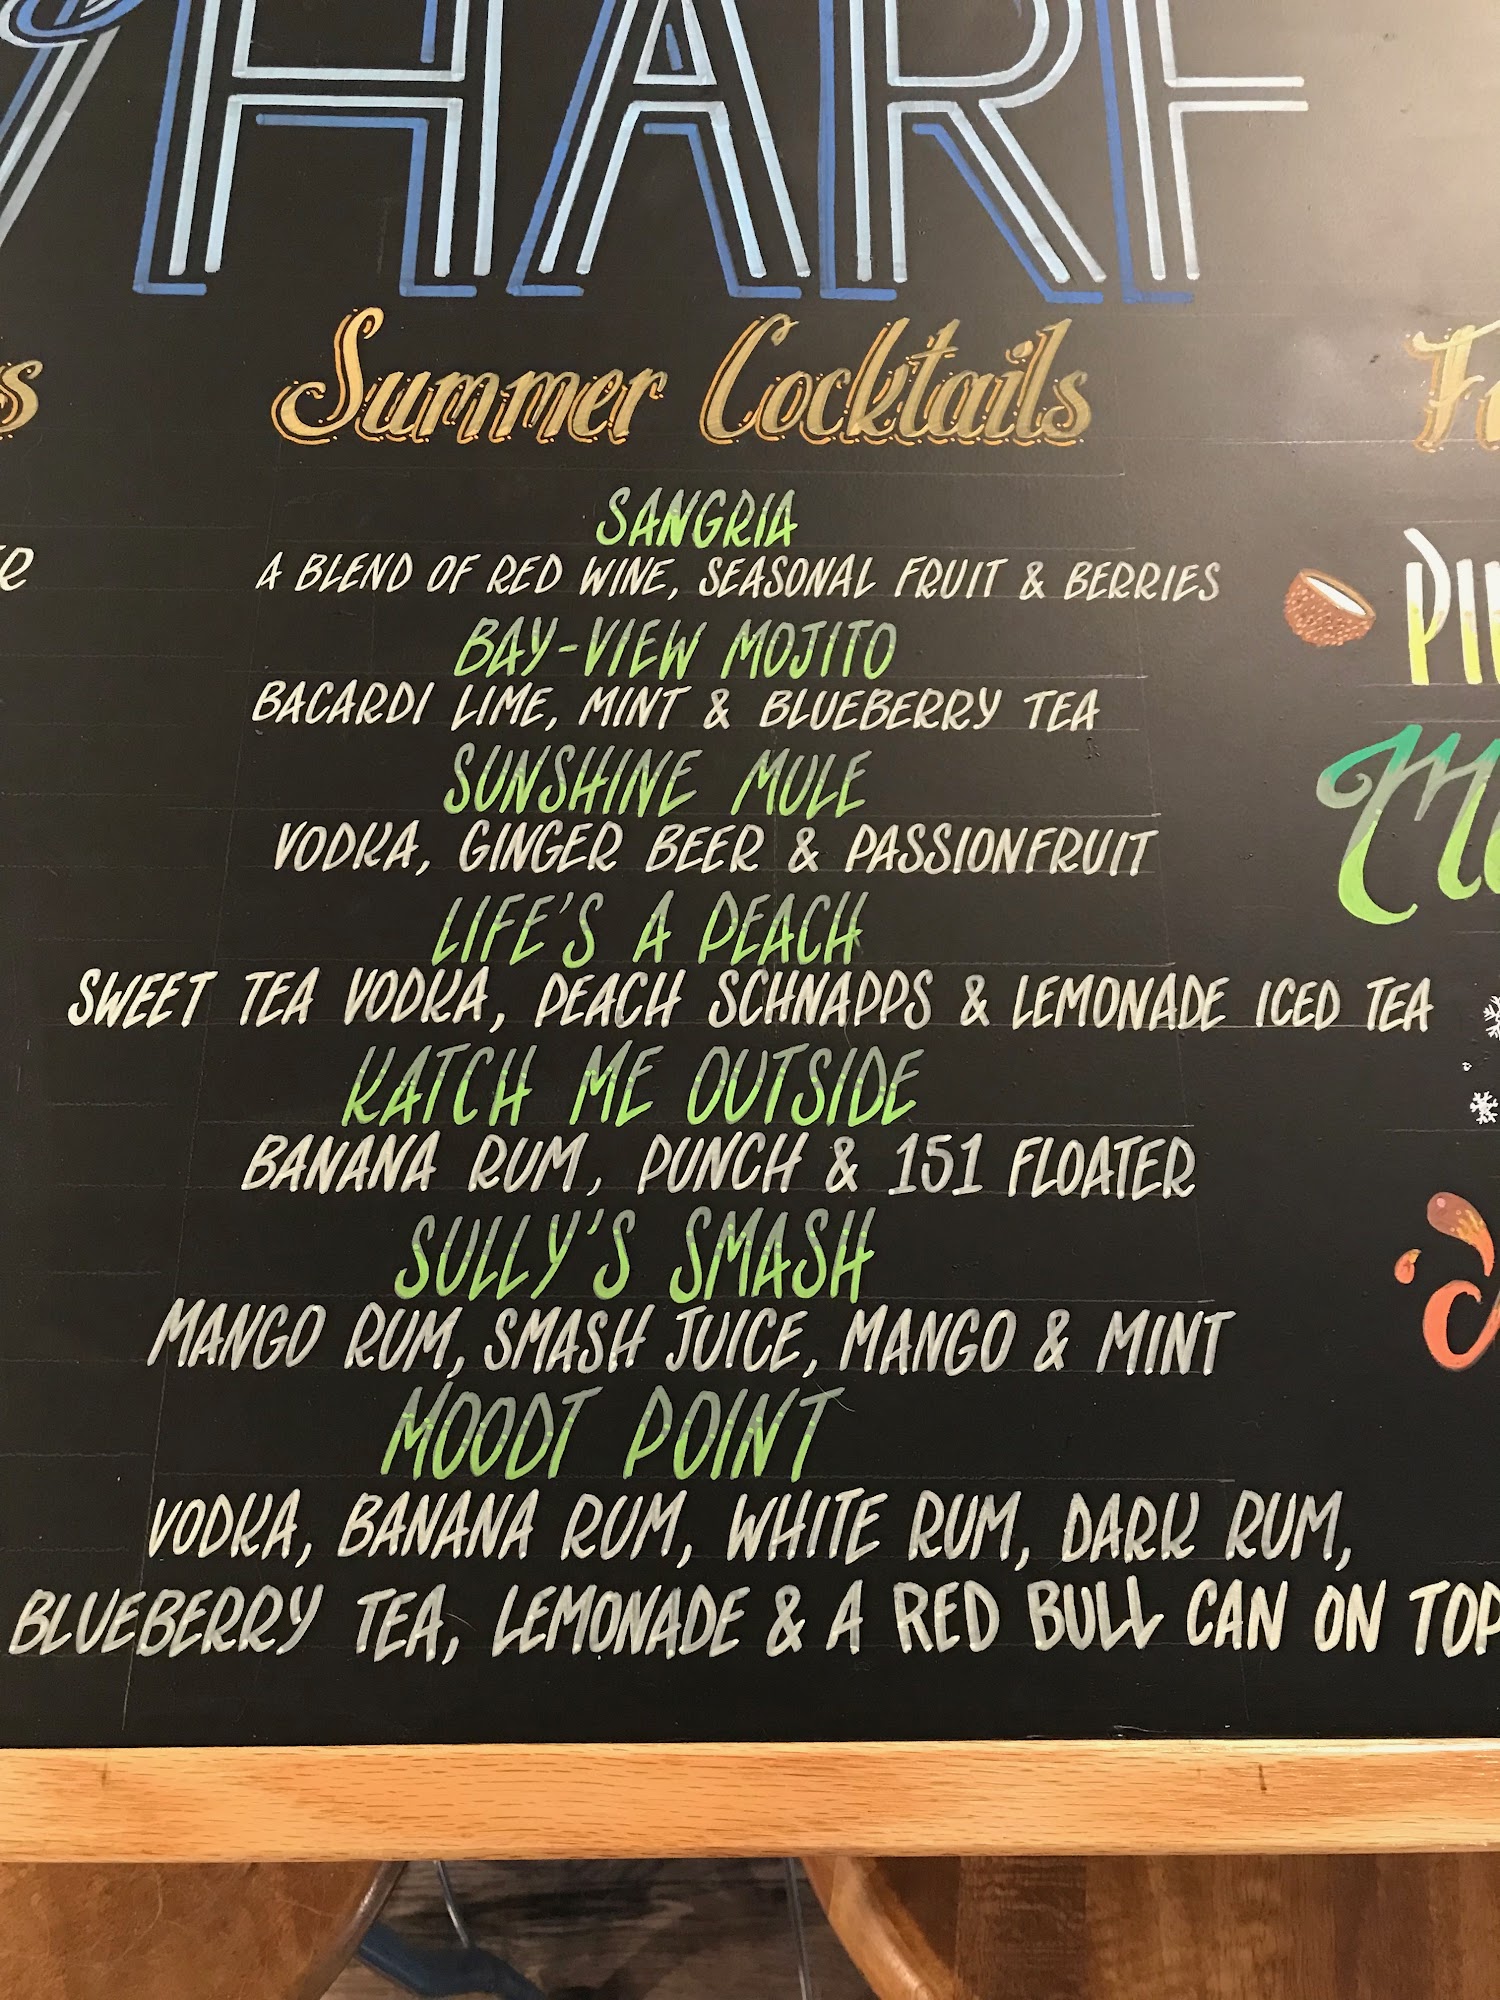 HARF
Summer Cocktails
SANGRIA
A BLEND OF RED WINE, SEASONAL FRUIT & BERRIES
BAY-VIEW MOJITO
BACARDI LIME, MINT & BLUEBERRY TEA
SUNSHINE MULE
VODKA, GINGER BEER & PASSIONFRUIT
LIFE'S A PEACH
SWEET TEA VODKA, PEACH SCHNAPPS & LEMONADE ICED TEA
KATCH ME OUTSIDE
BANANA RUM, PUNCH & 151 FLOATER
SULLY'S SMASH
MANGO RUM, SMASH JUICE, MANGO & MINT
MOODT POINT
VODKA, BANANA RUM, WHITE RUM, DARK RUM,
BLUEBERRY TEA, LEMONADE & A RED BULL CAN ON TOP